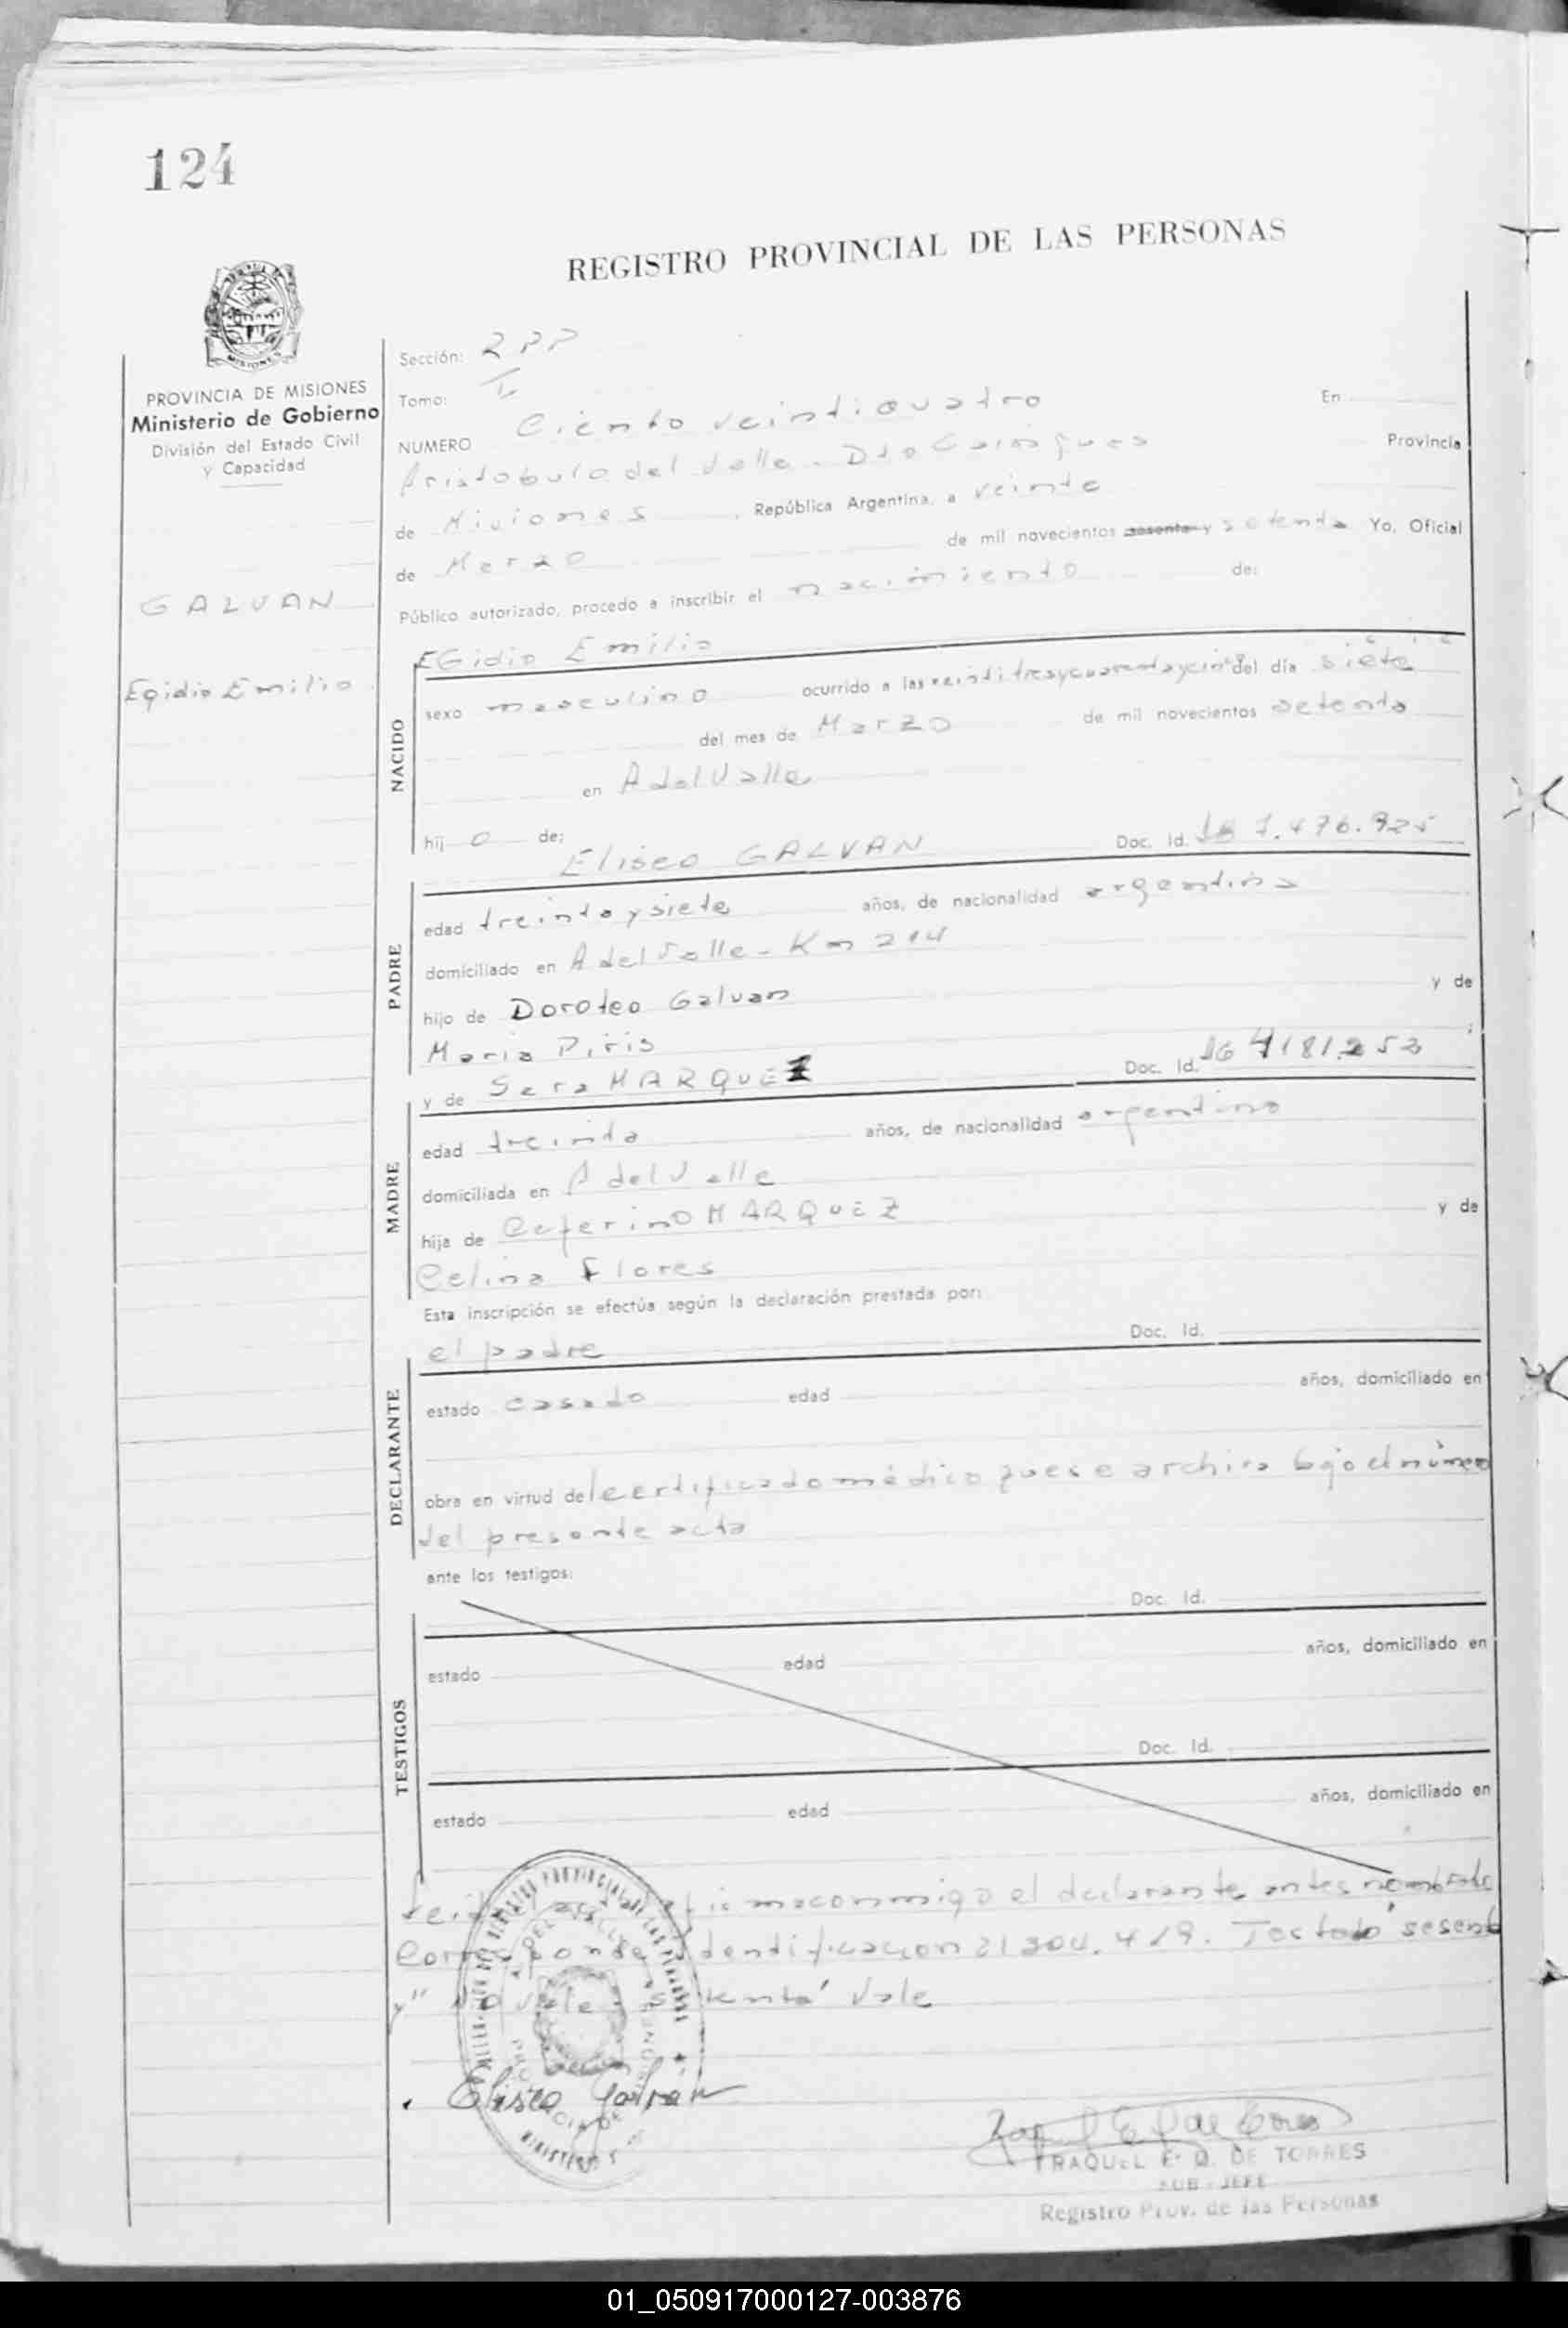 124
REGISTRO PROVINCIAL DE LAS PERSONAS
MISIONES
PROVINCIA DE MISIONES
Ministerio de Gobierno
División del Estado Civil
y Capacidad
GALVAN
Egidio Emilio
Sección: RPP
Tomo: I
NUMERO Ciento veintiquatro En
Aristobulo del Valle - Dto Cainguas Provincia
de Misiones, República Argentina, a veinte
de Marzo de mil novecientos sesenta y setenta Yo, Oficial
Público autorizado, procedo a inscribir el nacimiento de:
EGidio Emilio
NACIDO
sexo masculino ocurrido a las veintitresycuarentaycinco del día siete
del mes de Marzo de mil novecientos setenta
en A del Valle
hijo de: Eliseo GALVAN Doc. Id. 7.476.925
PADRE
edad treinta y siete años, de nacionalidad argentina
domiciliado en A del Valle - Km 214
hijo de Doroteo Galvan y de
Maria Piris ;
y de Sara MARQUEZ Doc. Id. 4181.253
MADRE
edad treinta años, de nacionalidad argentina
domiciliada en A del Valle
hija de Ceferino MARQUEZ y de
Celina Flores
Esta inscripción se efectúa según la declaración prestada por:
el padre Doc. Id.
DECLARANTE
estado casado edad años, domiciliado en
obra en virtud del certificado médico que se archiva bajo el número
del presente acta
ante los testigos:
Doc. Id.
TESTIGOS
estado edad años, domiciliado en
Doc. Id.
estado edad años, domiciliado en
firma conmigo el declarante antes nombrado
Corresponde Identificacion 21.304.419. Testado "sesenta
y" no vale "setenta" Vale
Eliseo Galván
RAQUEL E. Q. DE TORRES
SUB - JEFE
Registro Prov. de las Personas
01_050917000127-003876